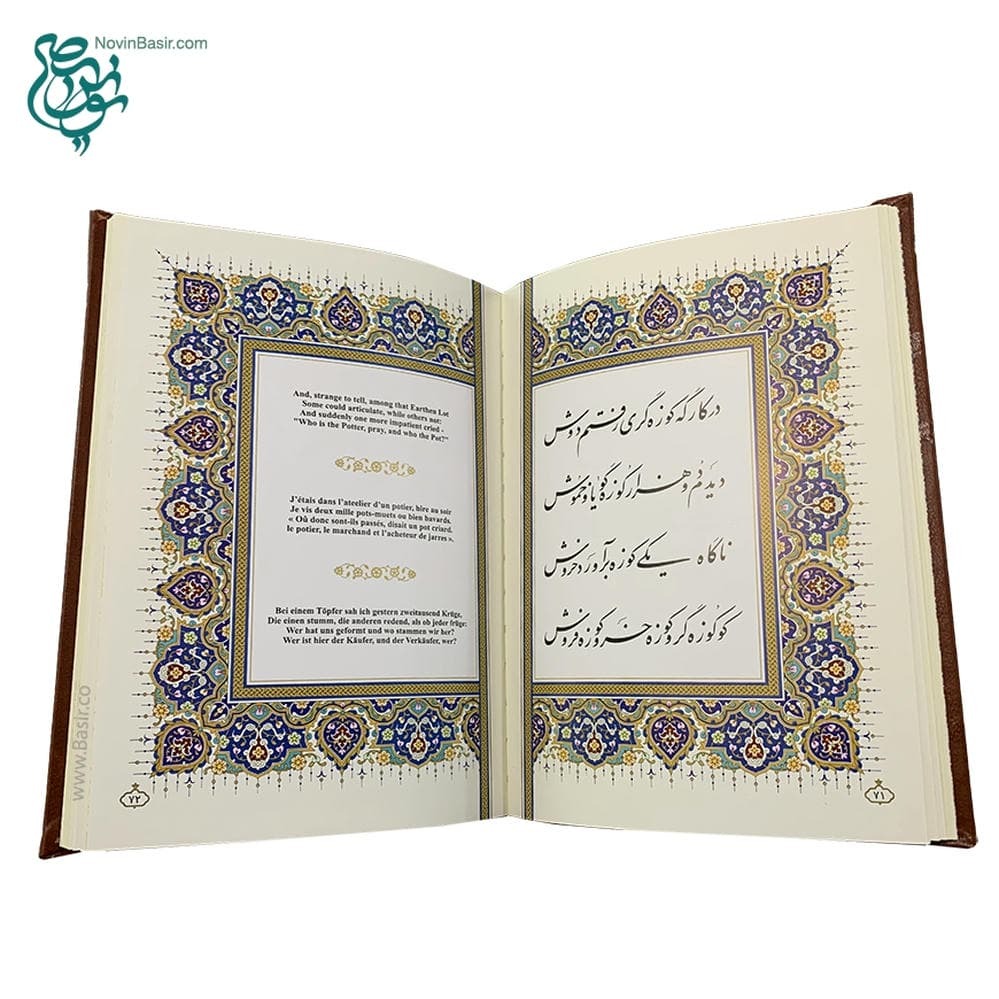 NovinBasir.com
در کارگه کوزه‌گری رفتم دوش
دیدم دو هزار کوزه گویا و خموش
ناگاه یکی کوزه برآورد خروش
کو کوزه‌گر و کوزه‌خر و کوزه‌فروش
۷۱
And, strange to tell, among that Earthen Lot
Some could articulate, while others not:
And suddenly one more impatient cried -
"Who is the Potter, pray, and who the Pot?"
J'étais dans l'ateelier d'un potier, hire au soir
Je vis deux mille pots-muets ou bien bavards.
« Oû donc sont-ils passés, disait un pot criard.
le potier, le marchand et l'acheteur de jarres ».
Bei einem Töpfer sah ich gestern zweitausend Krüge,
Die einen stumm, die anderen redend, als ob jeder früge:
Wer hat uns geformt und wo stammen wir her?
Wer ist hier der Käufer, und der Verkäufer, wer?
۷۲
www.Basir.co